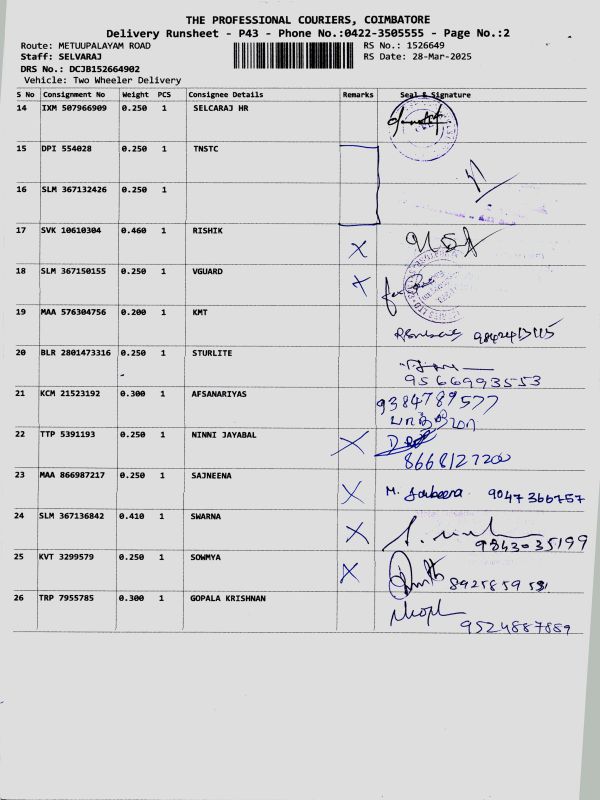 THE PROFESSIONAL COURIERS, COIMBATORE
Delivery Runsheet - P43 - Phone No.:0422-3505555 - Page No.:2
Route: METUUPALAYAM ROAD RS No.: 1526649
Staff: SELVARAJ RS Date: 28-Mar-2025
DRS No.: DCJB152664902
Vehicle: Two Wheeler Delivery
S No Consignment No Weight PCS Consignee Details Remarks Seal & Signature
14 IXM 507966909 0.250 1 SELCARAJ HR
15 DPI 554028 0.250 1 TNSTC
16 SLM 367132426 0.250 1
17 SVK 10610304 0.460 1 RISHIK X
18 SLM 367150155 0.250 1 VGUARD X
19 MAA 576304756 0.200 1 KMT
20 BLR 2801473316 0.250 1 STURLITE
9566993553
21 KCM 21523192 0.300 1 AFSANARIYAS 9384789577
22 TTP 5391193 0.250 1 NINNI JAYABAL X
8668127200
23 MAA 866987217 0.250 1 SAJNEENA X M. 9047366757
24 SLM 367136842 0.410 1 SWARNA X
9843035199
25 KVT 3299579 0.250 1 SOWMYA X
26 TRP 7955785 0.300 1 GOPALA KRISHNAN
9524887889